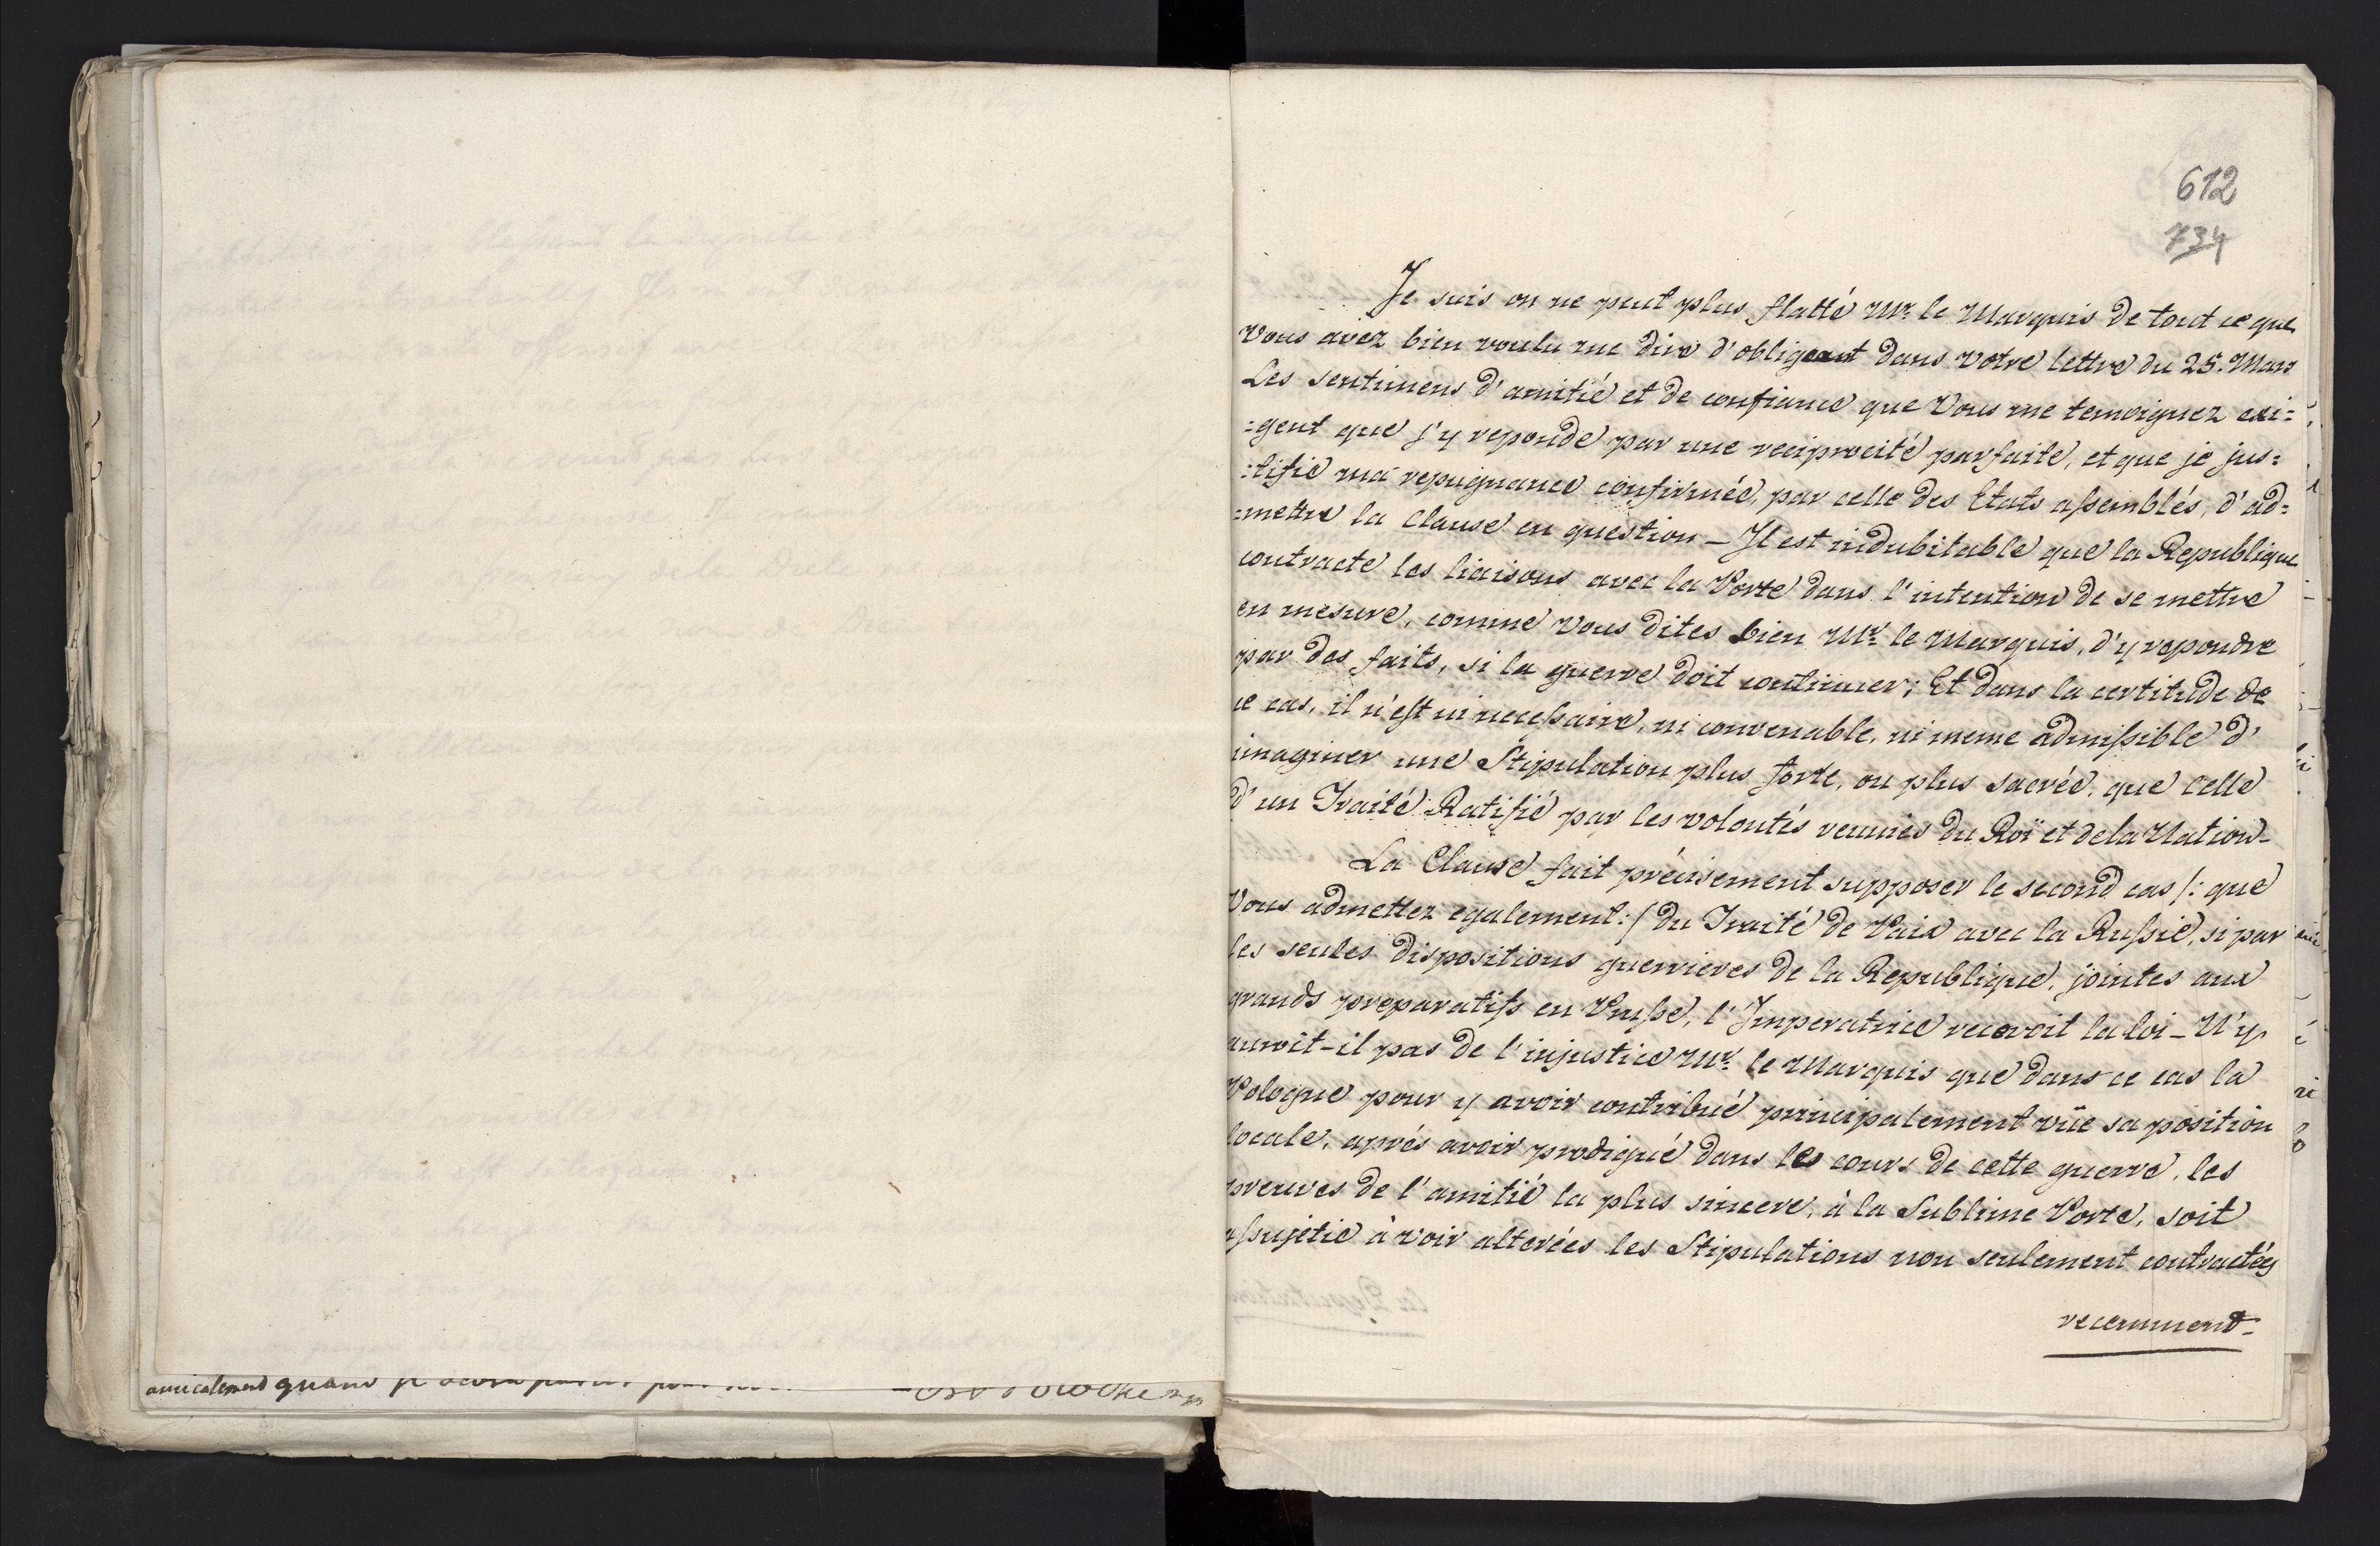 amicalement quand je
612
734
Je suis on ne peut plus flatté Mr. le Marquis de tout ce que
vous avez bien voulu me dire d'obligeant dans votre lettre du 25. Mars
Les sentimens d'amitié et de confiance que Vous me temoignez exi=
=gent que j'y reponde par une reciprocité parfaite, et que je jus=
=tifie ma repugnance confirmée, par celle des Etats assemblés, d'ad=
=mettre la Clause en question _ Il est indubitable que la Republique
contracte les liaisons avec la Porte dans l'intention de se mettre
en mesure, comme vous dites bien Mr. le Marquis, d'y repondre
par des faits, si la guerre doit continuer; Et dans la certitude de
ce cas, il n'est ni necessaire, ni convenable, ni meme admissible d'
imaginer une Stipulation plus forte, ou plus sacrée, que celle
d'un Traité Ratifié par les volontés reunies du Roi et de la Nation_
La Clause fait précisement supposer le second cas /: que
Vous admettez egalement :/ du Traité de Paix avec la Russie, si par
les seules dispositions guerrieres de la Republique, jointes aux
grands preparatifs en Prusse, l'Imperatrice recevoit la loi _ N'y
auroit-il pas de l'injustice Mr. le Marquis que dans ce cas la
Pologne pour y avoir contribué principalement vûe sa position
locale, aprés avoir prodigué dans les cours de cette guerre, les
preuves de l'amitié la plus sincere, à la Sublime Porte, soit
assujetie à voir alterées les Stipulations non seulement contractées
recemment_